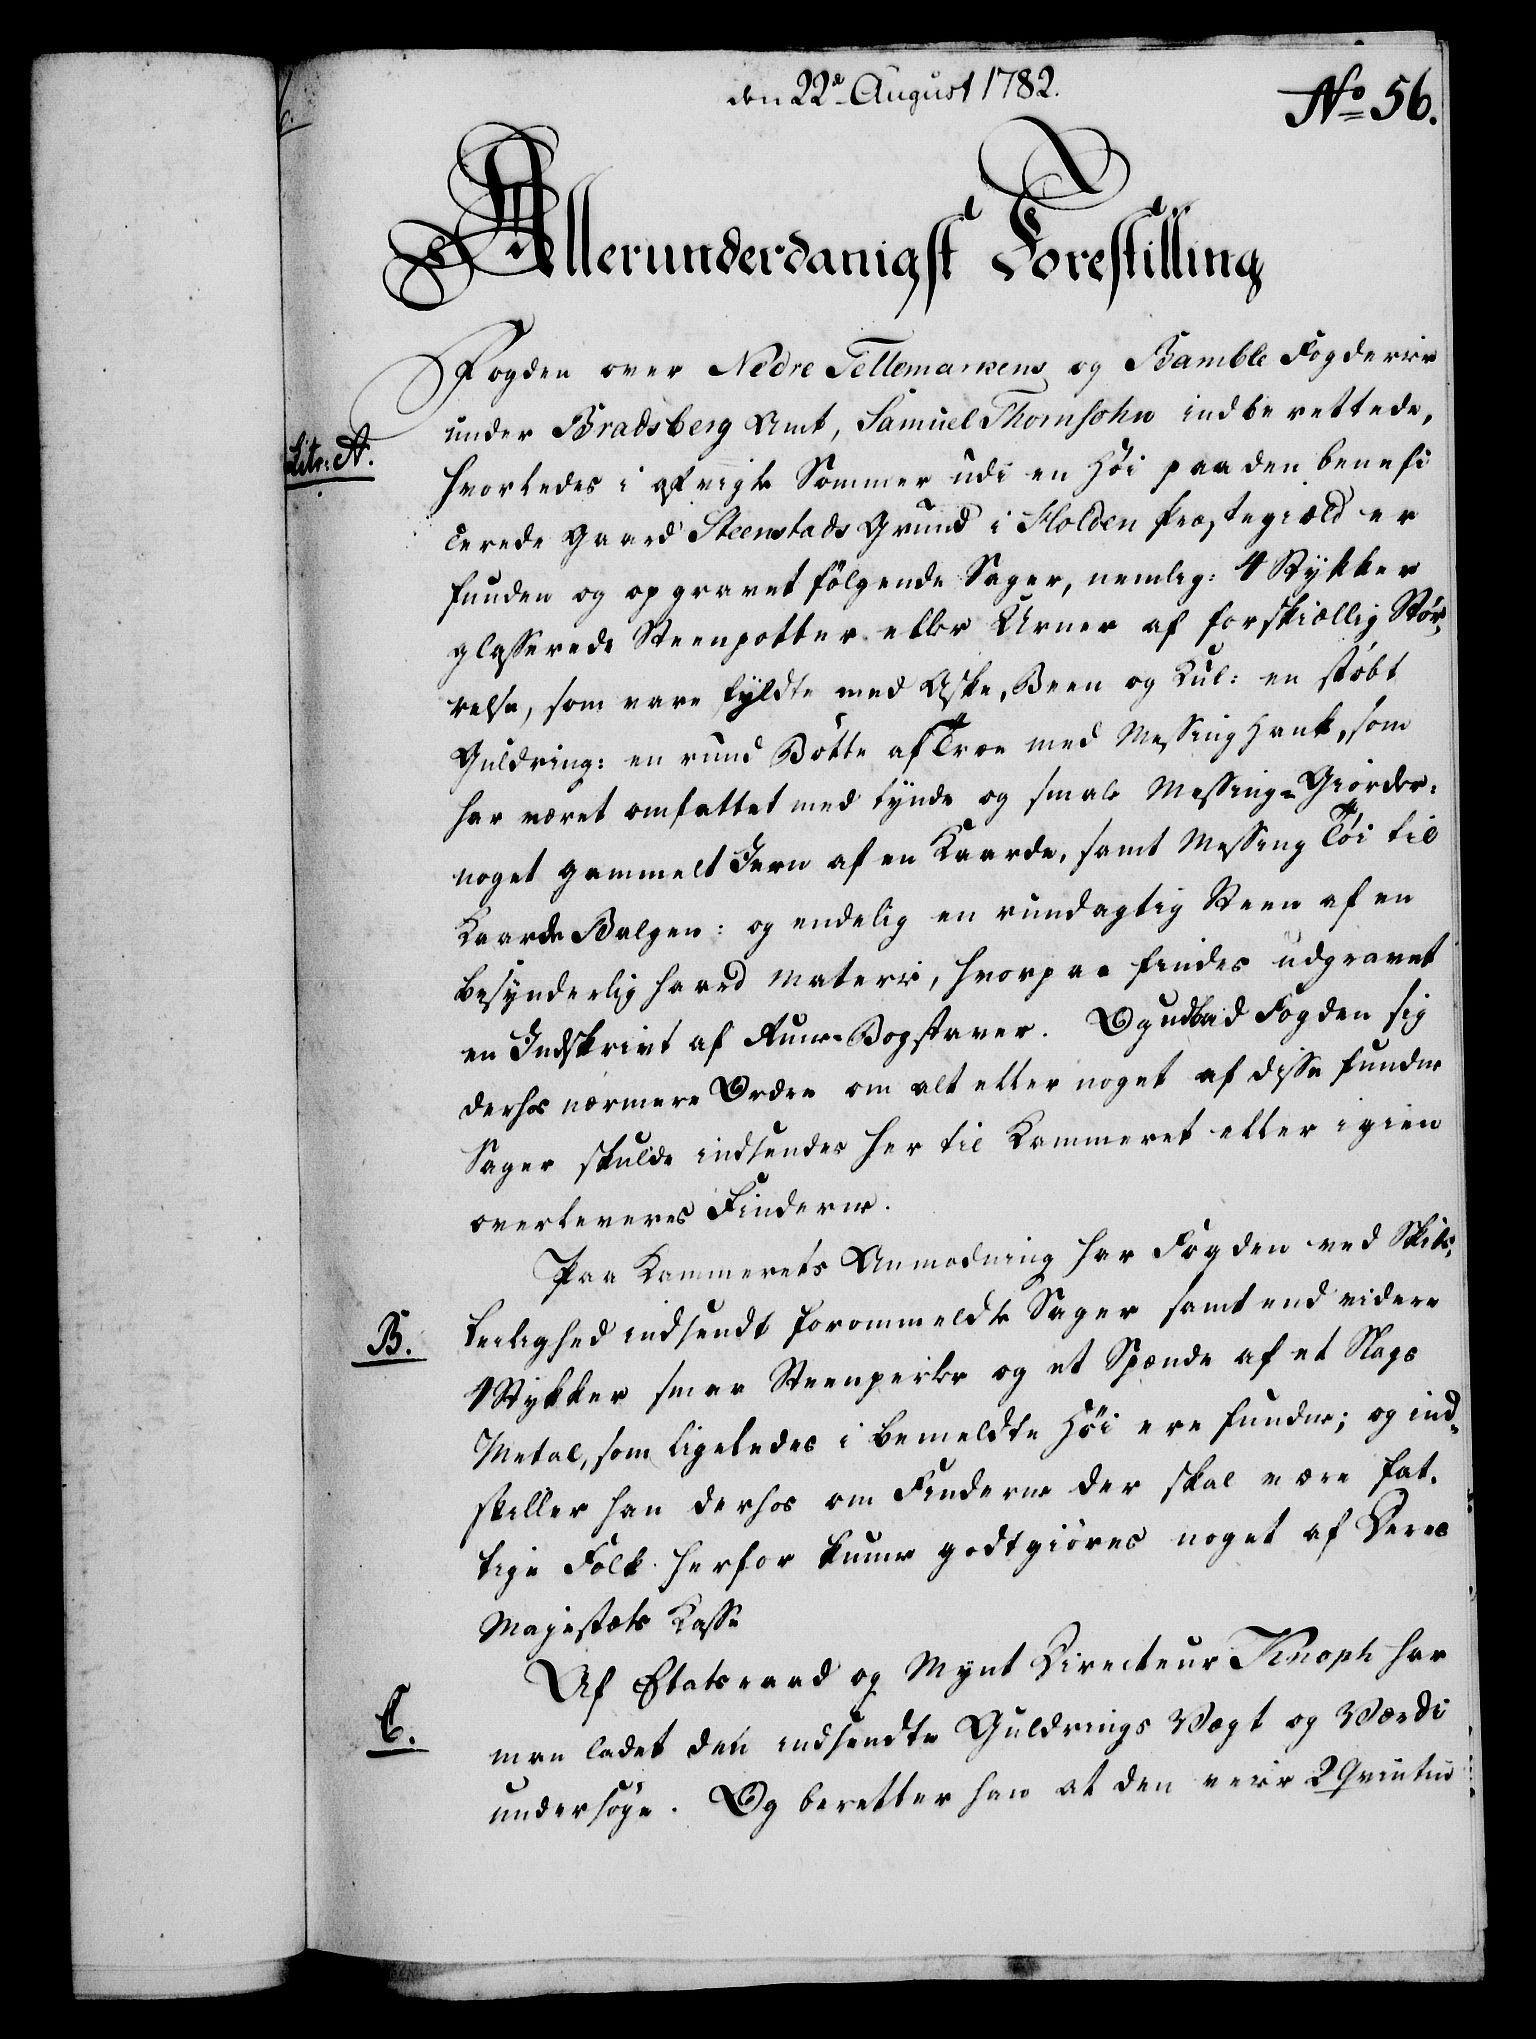 den 22de August 1782.
No 56.
Allerunderdanigst Forestilling
Fogden over Nedre Tellemarkens og Bamble Fogderier
under Bradsberg Amt, Samuel Thornsohn indberettede,
Litr: A.
hvorledes i afvigte Sommer udi en Høi paa den benefi
cerede Gaard Steenstads Grund i Holden Præstegiæld er
funden og opgravet følgende Sager, nemlig: 4 Stykker
glasserede Steenpotter eller Urner af forskiællig Stør,
relse, som vare fyldte med Aske, Been og Kul: en støbt
Guldring: en rund Bøtte af Træe med Messing Hank, som
har været omfattet med tynde og smale Messing-Giorder:
noget gammelt Jern af en Kaarde, samt Messing Tøi til
Kaarde Balgen: og endelig en rundagtig Steen af en
besynderlig haard Materie, hvorpaa findes udgravet
en Indskrivt af Rune-Bogstaver. Og udbad Fogden sig
derhos nærmere Ordre om alt eller noget af disse fundne
Sager skulde indsendes her til Kammeret eller igien
overleveres Finderne.
Paa Kammerets Anmodning har Fogden ved Skibs,
B.
leilighed indsendt forommeldte Sager samt end videre
4 Stykker smaa Steenperler og et Spænde af et Slags
Metal, som ligeledes i bemeldte Høi ere fundne; og ind-
stiller han derhos om Finderne der skal være fat,
tige Folk herfor kunne godtgiøres noget af Deres
Majestæts Kasse
Af Etatsraad og Mynt Directeur Knoph har
C.
man ladet den indsendte Guldrings Vægt og Værdi
undersøge. Og beretter han at den veier 2 Qvintin